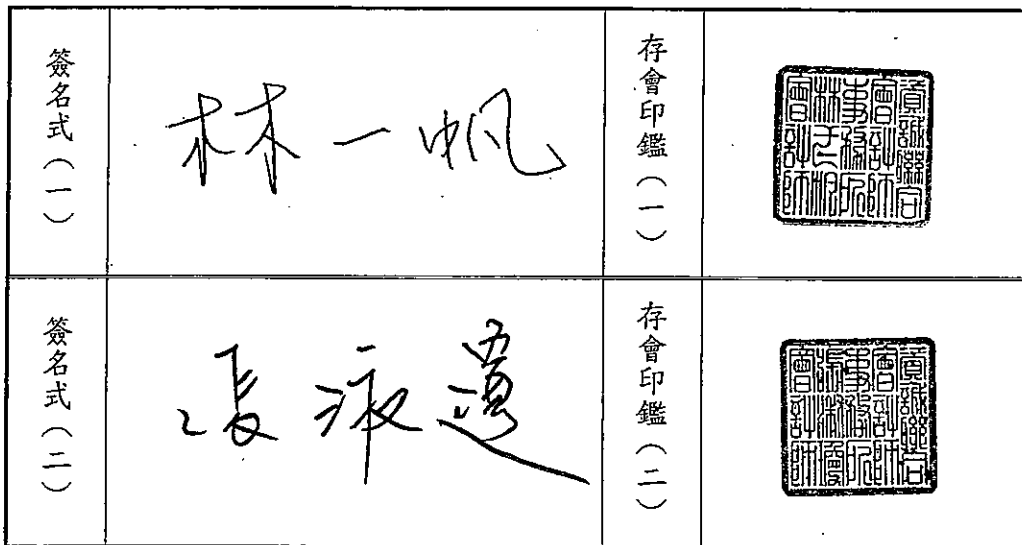 簽名式(一)
林一帆
存會印鑑(一)
資誠聯合
會計師
事務所
會計師
簽名式(二)
張淑瓊
存會印鑑(二)
資誠聯合
會計師
事務所
張淑瓊
會計師